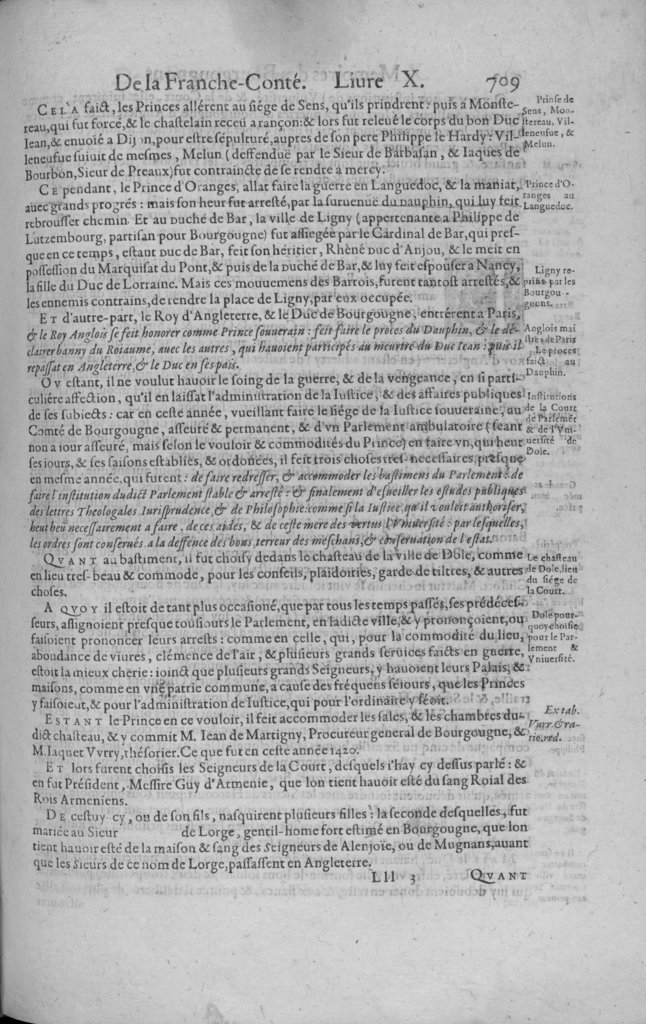 De la Franche-Conté. Liure X. 709
CELA faict, les Princes allérent au siége de Sens, qu'ils prindrent: puis à Monste-
reau, qui fut forcé, & le chastelain receu a rançon: & lors fut releué le corps du bon Duc
Iean, & enuoié a Dijon, pour estre sépulturé, aupres de son pere Philippe le Hardy: Vil-
leneufue suiuit de mesmes, Melun (deffenduë par le Sieur de Barbasan, & Iaques de
Bourbon, Sieur de Preaux) fut contraincte de se rendre a mercy.
Prinse de
Sens, Mon-
stereau, Vil-
leneufue, &
Melun.
CE pendant, le Prince d'Oranges, allat faire la guerre en Languedoc, & la maniat,
auec grands progrés: mais son heur fut arresté, par la suruenuë du Dauphin, qui luy feit
rebrousser chemin. Et au Duché de Bar, la ville de Ligny (appertenante a Philippe de
Lutzembourg, partisan pour Bourgougne) fut assiegée par le Cardinal de Bar, qui pres-
que en ce temps, estant Duc de Bar, feit son héritier, Rhéné Duc d'Anjou, & le meit en
possession du Marquisat du Pont, & puis de la Duché de Bar, & luy feit espouser a Nancy,
la fille du Duc de Lorraine. Mais ces mouuemens des Barrois, furent tantost arrestés, &
les ennemis contrains, de rendre la place de Ligny, par eux occupée.
Prince d'O-
ranges au
Languedoc.
Ligny re-
prins par les
Bourgou-
gnons.
ET d'autre-part, le Roy d'Angleterre, & le Duc de Bourgougne, entrérent a Paris,
& le Roy Anglois se feit honorer comme Prince souuerain: feit faire le procés du Dauphin, & le dé-
clairer banny du Roiaume, auec les autres, qui hauoient participés au meurtre du Duc Iean: puis il
repassat en Angleterre, & le Duc en ses païs.
Anglois mai
stres de Paris
Le procés
faict au
Dauphin.
OV estant, il ne voulut hauoir le soing de la guerre, & de la vengeance, en si parti-
culiére affection, qu'il en laissat l'administration de la Iustice, & des affaires publiques
de ses subiects: car en ceste année, vueillant faire le siége de la Iustice souueraine, au
Comté de Bourgougne, asseuré & permanent, & d'vn Parlement ambulatoire (seant
non a iour asseuré, mais selon le vouloir & commodités du Prince) en faire vn, qui heut
ses iours, & ses saisons establiës, & ordonées, il feit trois choses tres-necessaires, presque
en mesme année, qui furent: de faire redresser, & accommoder les bastimens du Parlement: de
faire l'institution dudict Parlement stable & arresté: & finalement d'esueiller les estudes publiques
des lettres Theologales, Iurisprudence, & de Philosophie: comme si la Iustice, qu'il vouloit authoriser,
heut heu necessairement a faire, de ces aides, & de ceste mere des vertus l'Vniuersité: par lesquelles,
les ordres sont conserués, a la deffence des bons, terreur des meschans, & conseruation de l'estat.
Institutions
de la Court
de Parlemét
& de l'Vni-
uersité de
Dole.
QVANT au bastiment, il fut choisy dedans le chasteau de la ville de Dole, comme
en lieu tres-beau & commode, pour les conseils, plaidoiries, garde de tiltres, & autres
choses.
Le chasteau
de Dole, lieu
du siége de
la Court.
A QVOY il estoit de tant plus occasioné, que par tous les temps passés, ses prédéces-
seurs, assignoient presque tousiours le Parlement, en ladicte ville, & y prononçoient, ou
faisoient prononcer leurs arrests: comme en celle, qui, pour la commodité du lieu,
abondance de viures, clémence de l'air, & plusieurs grands seruices faicts en guerre,
estoit la mieux cherie: ioinct que plusieurs grands Seigneurs, y hauoient leurs Palais, &
maisons, comme en vne patrie commune, a cause des fréquens séiours, que les Princes
y faisoient, & pour l'administration de Iustice, qui pour l'ordinaire y séoit.
Dole pour-
quoy choisie
pour le Par-
lement &
Vniuersité.
ESTANT le Prince en ce vouloir, il feit accommoder les sales, & les chambres du-
dict chasteau, & y commit M. Iean de Martigny, Procureur general de Bourgougne, &
M. Iaquet Vvrry, thésorier. Ce que fut en ceste année 1420.
Ex tab.
Vurr. Gra-
tio. red.
ET lors furent choisis les Seigneurs de la Court, desquels i'hay cy dessus parlé: &
en fut Président, Messire Guy d'Armenie, que lon tient hauoir esté du sang Roial des
Rois Armeniens.
DE cestuy-cy, ou de son fils, nasquirent plusieurs filles: la seconde desquelles, fut
mariée au Sieur de Lorge, gentil-home fort estimé en Bourgougne, que lon
tient hauoir esté de la maison & sang des Seigneurs de Alenjoïe, ou de Mugnans, auant
que les Sieurs de ce nom de Lorge, passassent en Angleterre.
Lll 3 QVANT